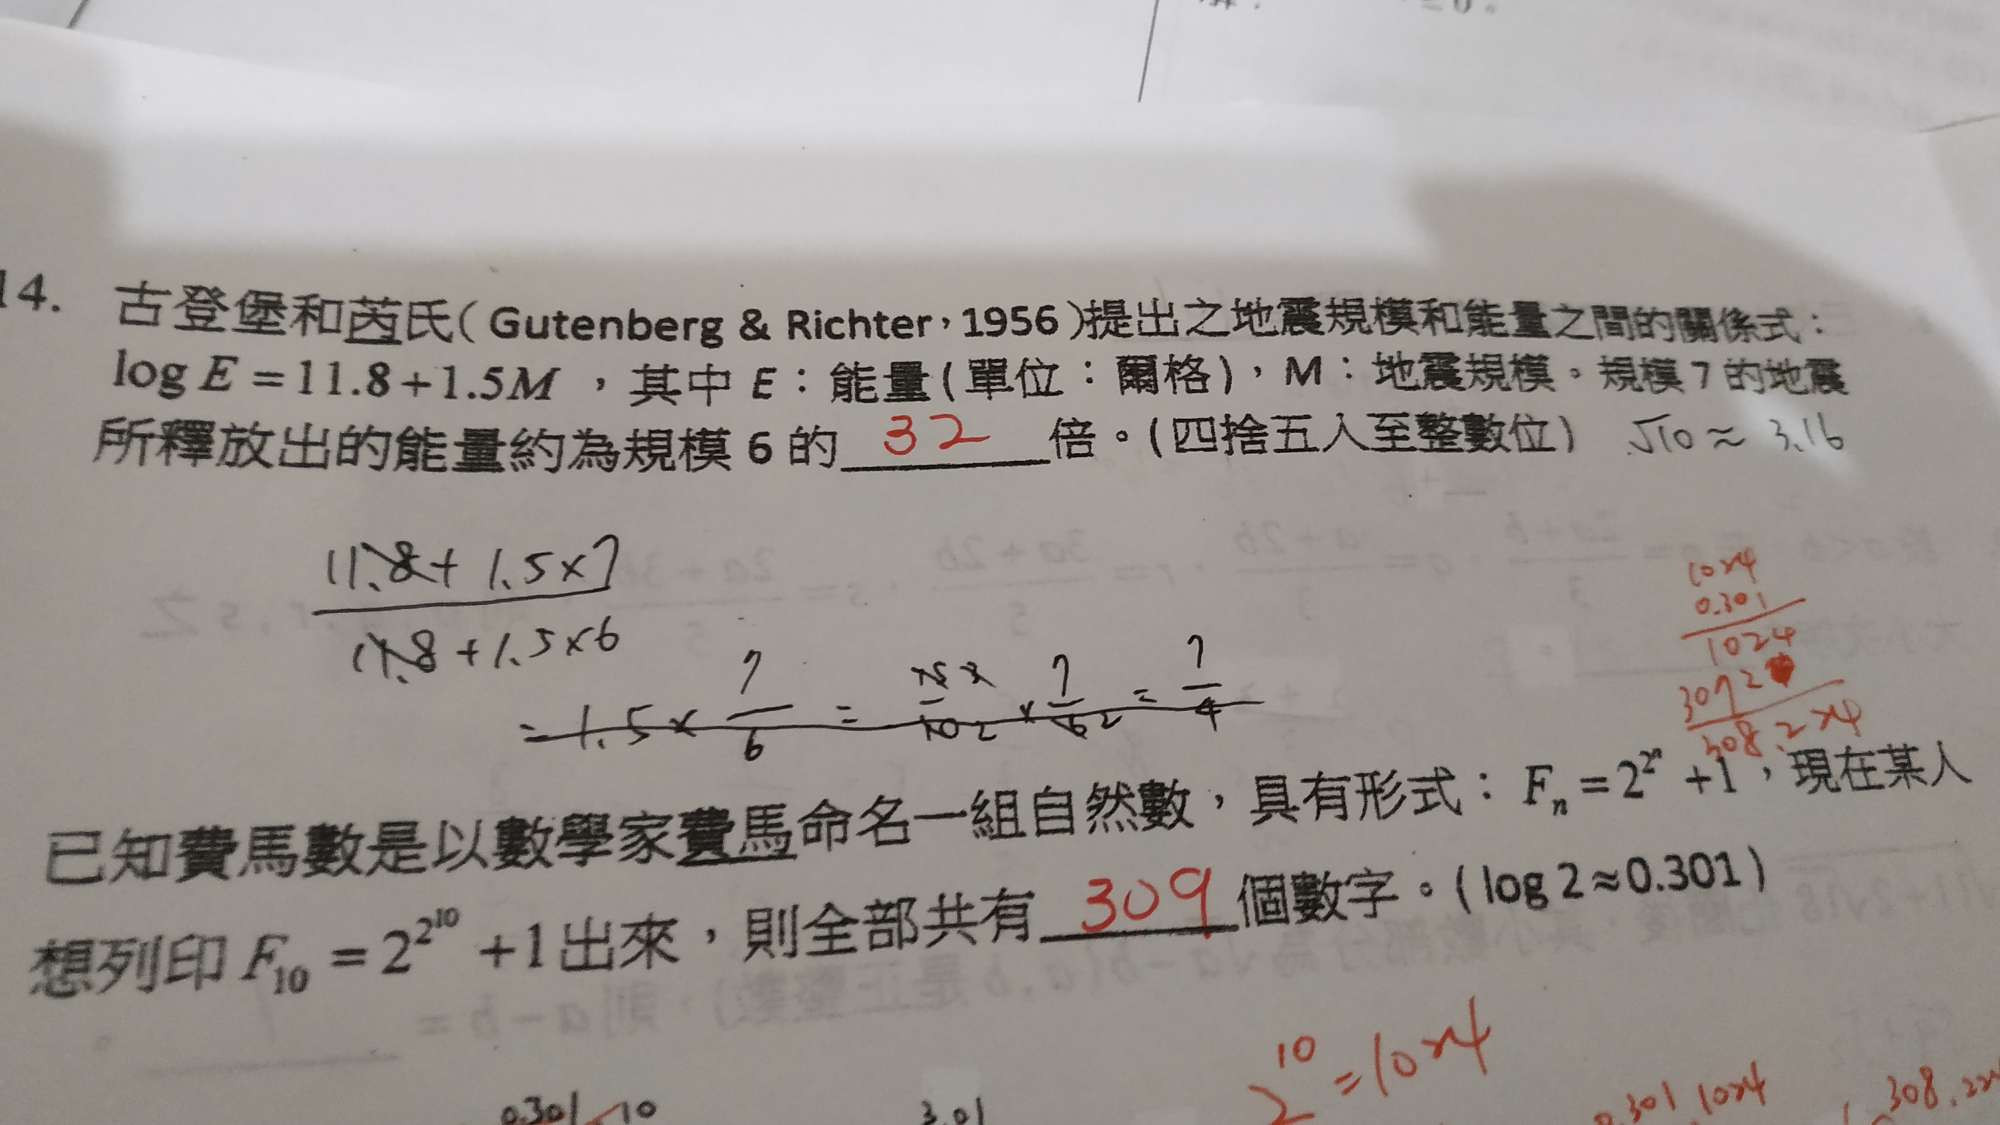 14. 古登堡和芮氏(Gutenberg & Richter,1956)提出之地震規模和能量之間的關係式:
log E = 11.8+1.5M ,其中 E:能量(單位:爾格),M:地震規模。規模 7 的地震
所釋放出的能量約為規模 6 的 32 倍。(四捨五入至整數位) √10 ≈ 3.16
11.8+1.5×7
11.8+1.5×6
= 1.5 × 7/6 = 15 3/10 2 × 7/6 2 = 7/4
1024
0.301
1024
3072
308.224
已知費馬數是以數學家費馬命名一組自然數,具有形式:Fₙ = 2^2^n +1,現在某人
想列印 F₁₀ = 2^2^10 +1出來,則全部共有 309 個數字。(log 2≈0.301)
2^10 = 1024
0.301 10
3.01
0.301 1024
308.22